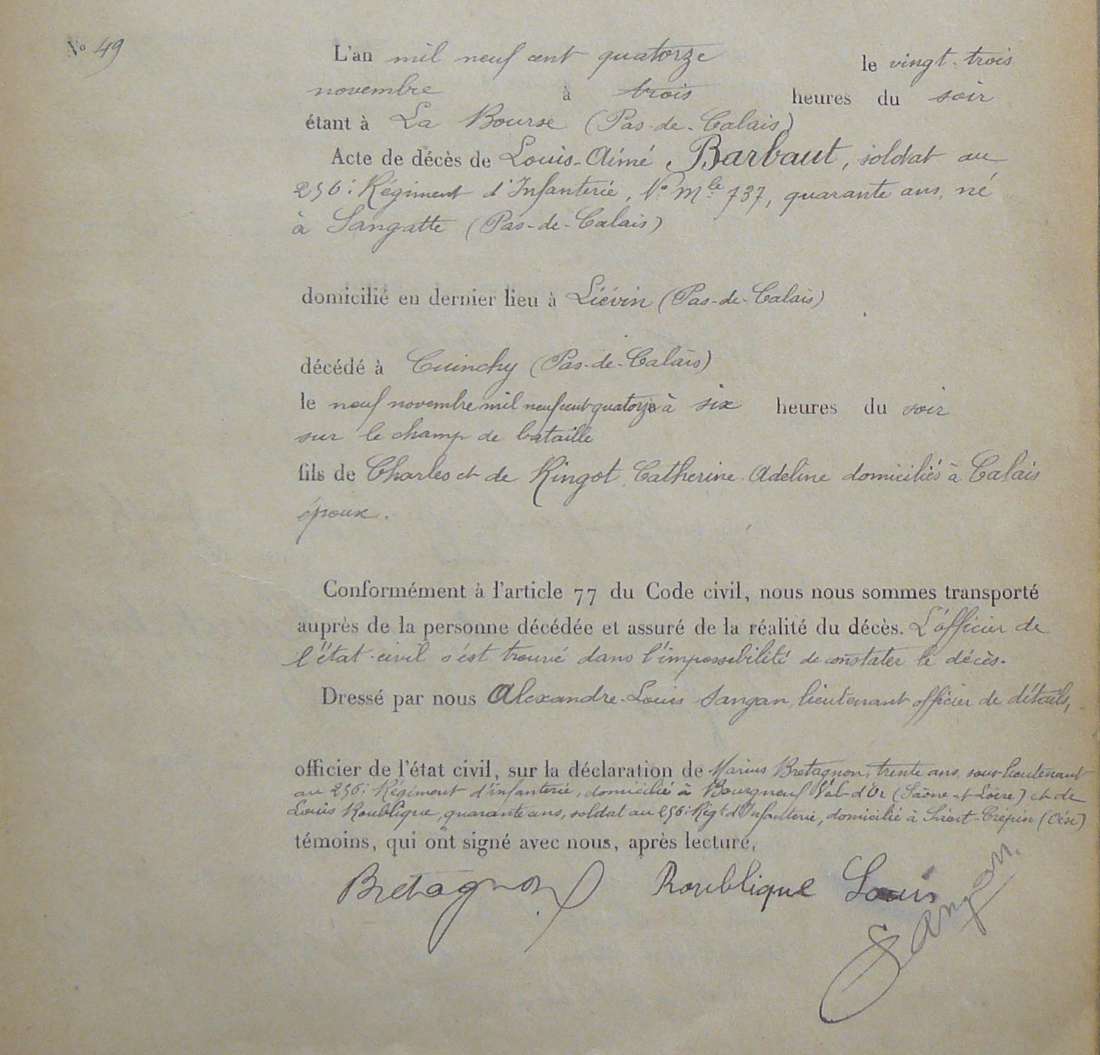 N° 49
L'an mil neuf cent quatorze le vingt-trois
novembre à trois heures du soir
étant à La Bourse (Pas-de-Calais)
Acte de décès de Louis-Aimé Barbaut, soldat au
256e Régiment d'Infanterie, N° Mle 737, quarante ans, né
à Sangatte (Pas-de-Calais)
domicilié en dernier lieu à Liévin (Pas-de-Calais)
décédé à Cuinchy (Pas-de-Calais)
le neuf novembre mil neuf cent quatorze à six heures du soir
sur le champ de bataille
fils de Charles et de Ringot Catherine Adeline domiciliés à Calais
époux.
Conformément à l'article 77 du Code civil, nous nous sommes transporté
auprès de la personne décédée et assuré de la réalité du décès. L'officier de
l'état-civil s'est trouvé dans l'impossibilité de constater le décès.
Dressé par nous Alexandre-Louis Sangan, lieutenant officier de détails,
officier de l'état civil, sur la déclaration de Marius Bretagnon, trente ans, sous-lieutenant
au 256e Régiment d'infanterie, domicilié à Bourgneuf Val d'Or (Saône-et-Loire) et de
Louis Roublique, quarante ans, soldat au 256e Régt d'Infanterie, domicilié à Saint-Crépin (Oise)
témoins, qui ont signé avec nous, après lecture,
Bretagnon Roublique Louis
Sangan.